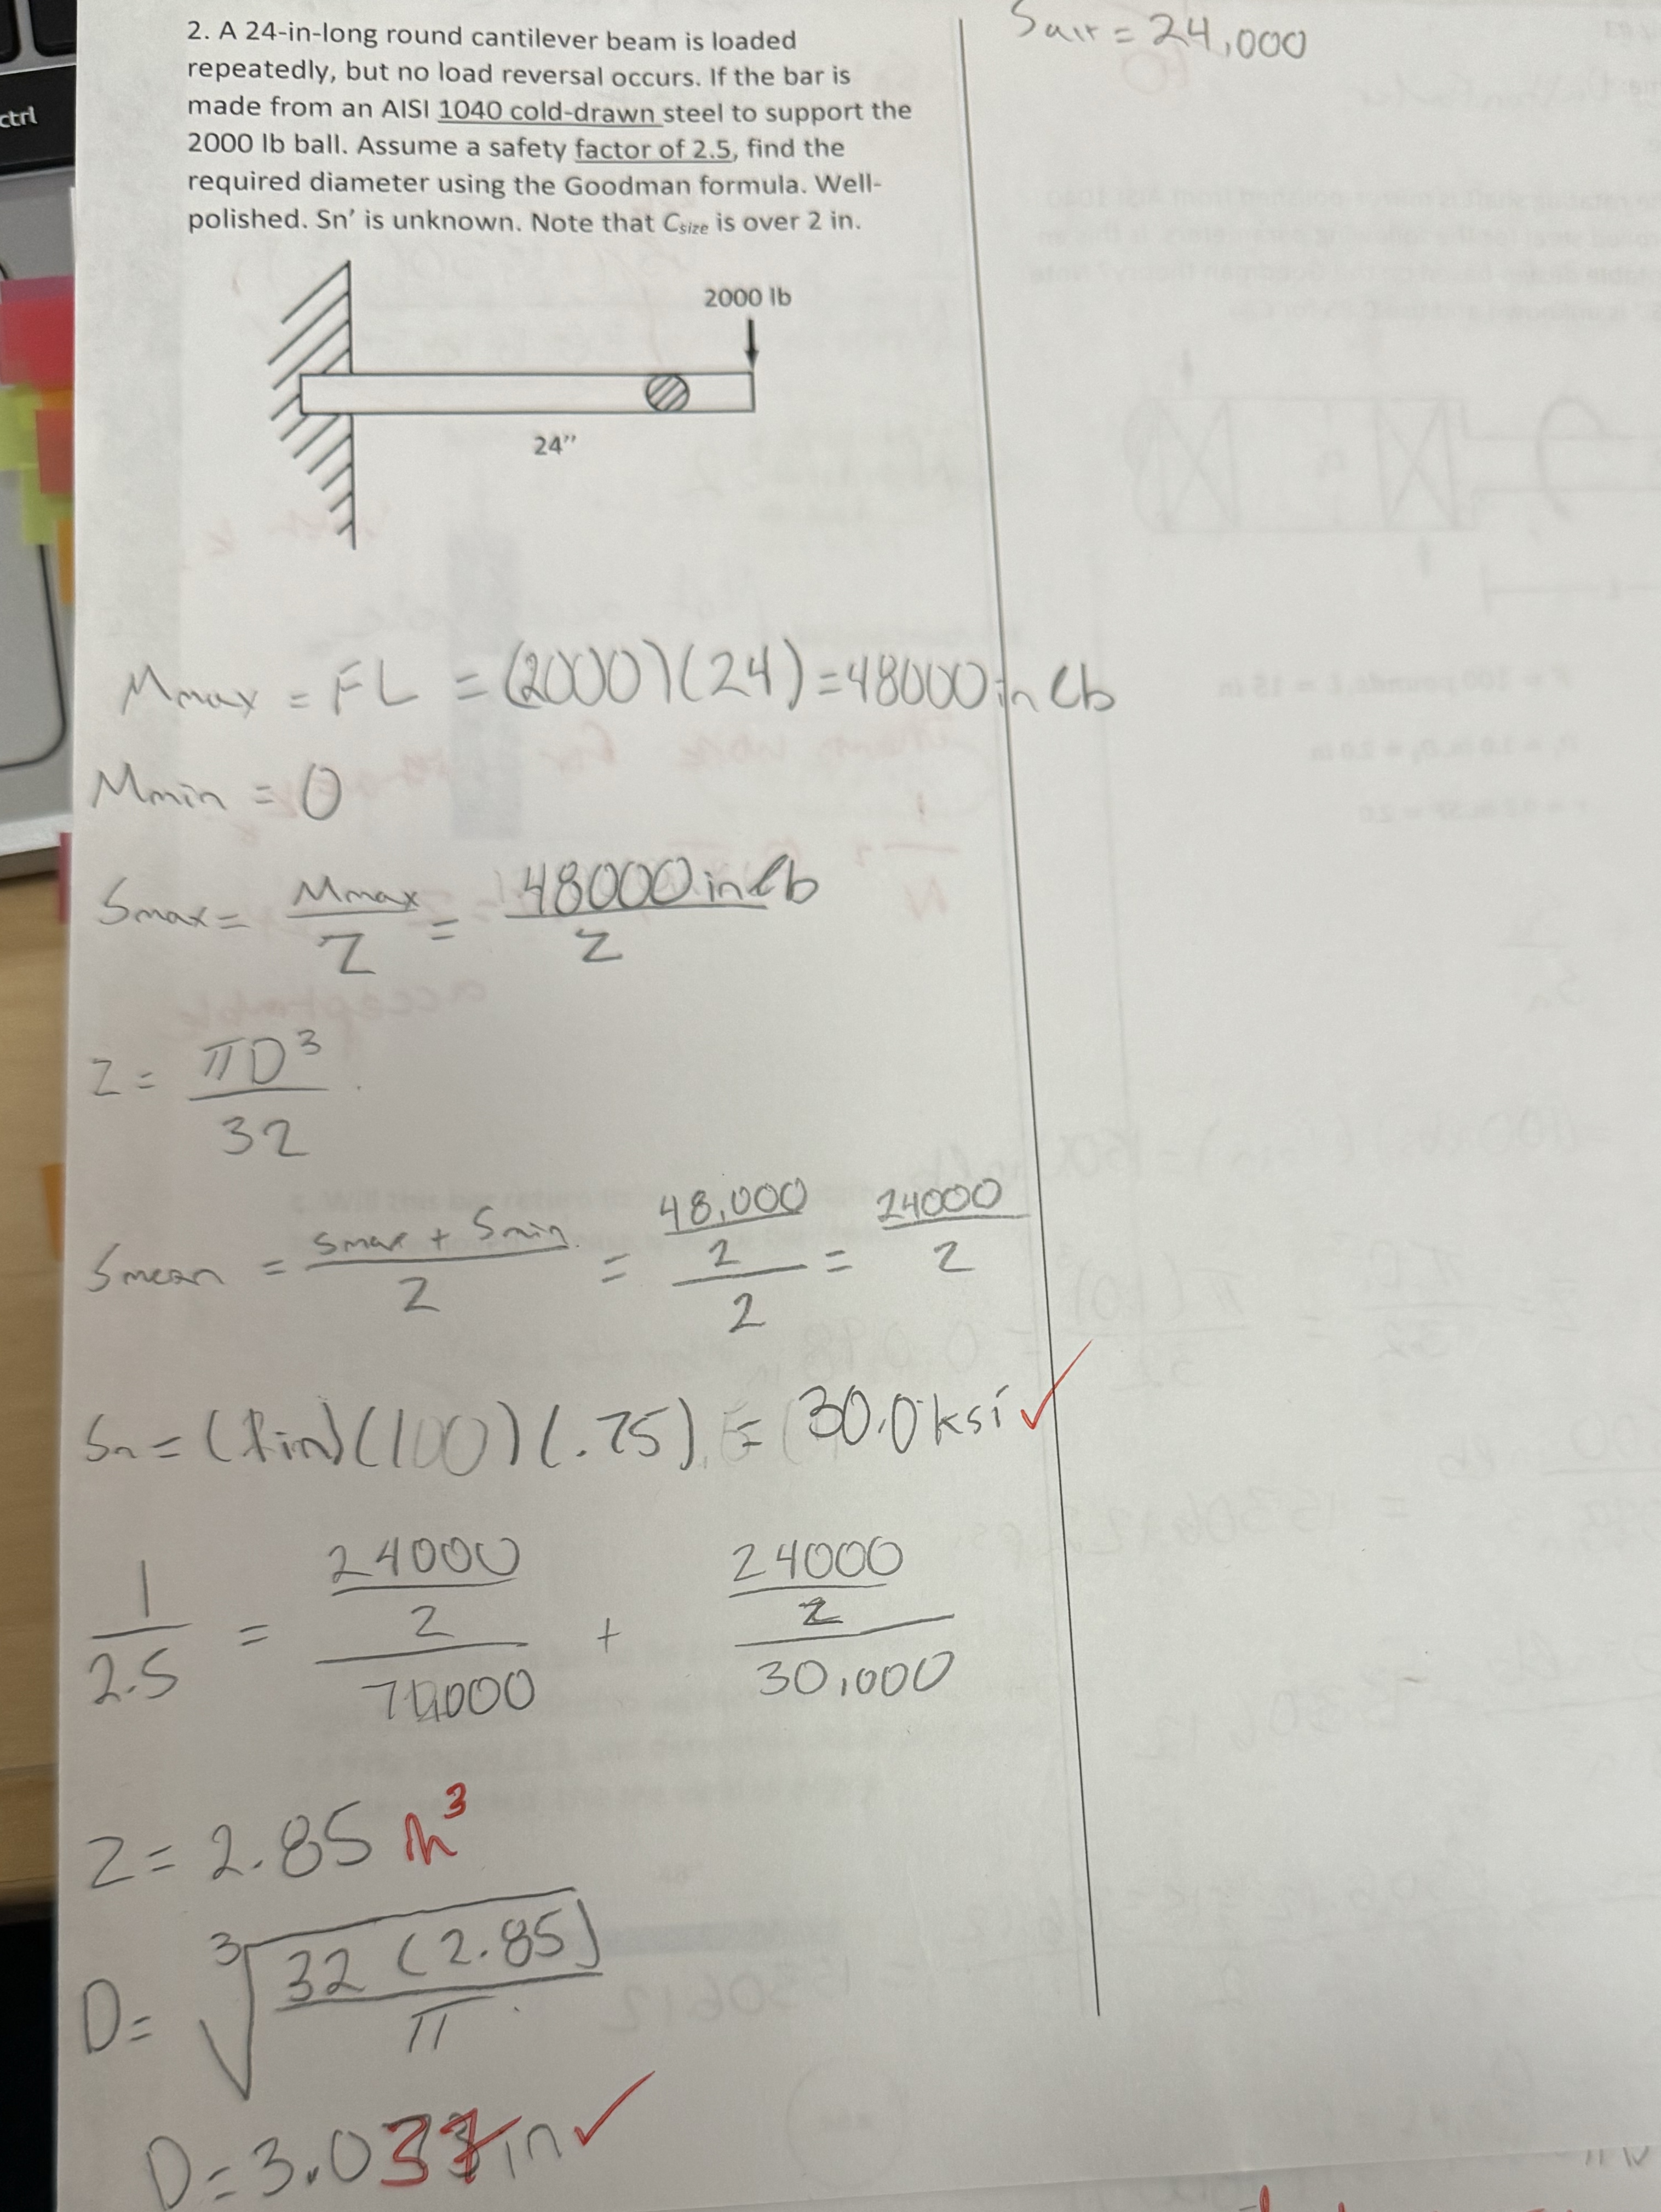 ctrl
2. A 24-in-long round cantilever beam is loaded
repeatedly, but no load reversal occurs. If the bar is
made from an AISI 1040 cold-drawn steel to support the
2000 lb ball. Assume a safety factor of 2.5, find the
required diameter using the Goodman formula. Well-
polished. Sn’ is unknown. Note that Csize is over 2 in.
Salt = 24,000
2000 lb
24”
Mmax = FL = (2000)(24) = 48000 in lb
Mmin = 0
Smax = Mmax/Z = 48000 in lb/Z
Z = πD³/32
Smean = Smax + Smin/2 = 48,000/Z/2 = 24000/Z
Sn = ( )(100)(.75) = 30.0 ksi ✓
1/2.5 = 24000/Z/ + 24000/Z/30,000
Z = 2.85 in³
D = ³√32(2.85)/π
D = 3.07 in ✓